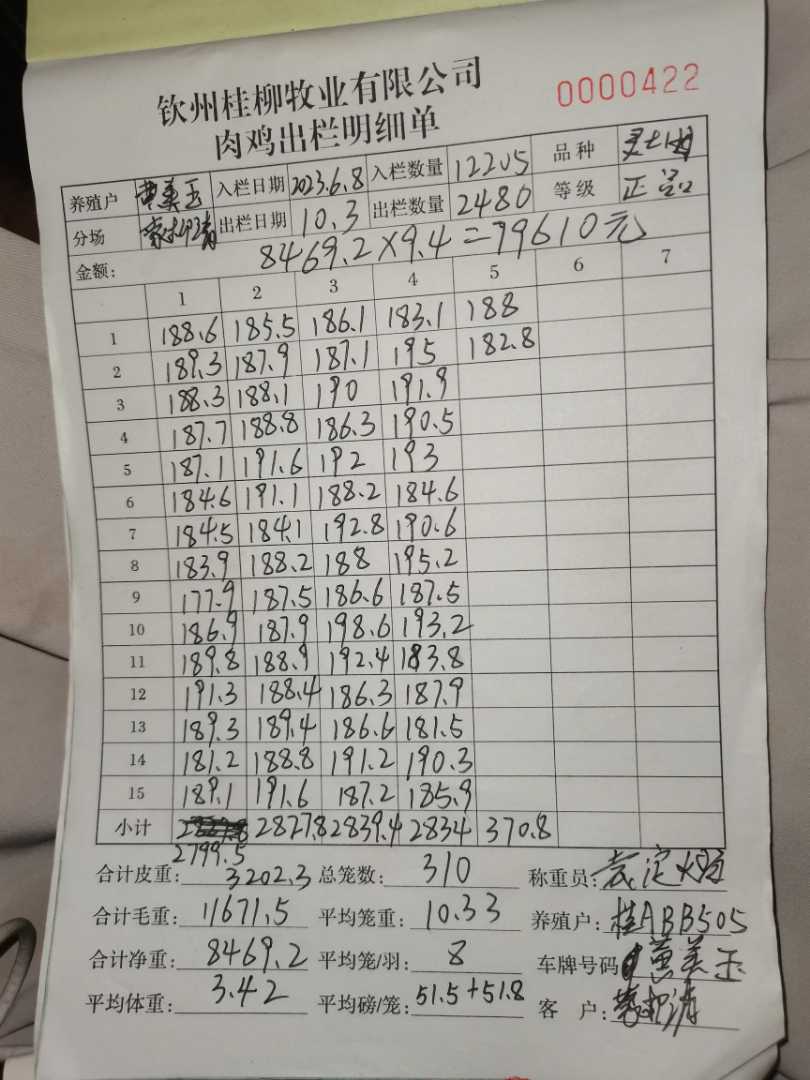 钦州桂柳牧业有限公司
0000422
肉鸡出栏明细单
养殖户 黄美玉 入栏日期 2023.6.8 入栏数量 12205 品种
分场 出栏日期 10.3 出栏数量 2480 等级 正
金额: 8469.2×9.4=79610元
1 2 3 4 5 6 7
1 188.6 185.5 186.1 183.1 188
2 189.3 187.9 187.1 195 182.8
3 188.3 188.1 190 191.9
4 187.7 188.8 186.3 190.5
5 187.1 191.6 192 193
6 184.6 191.1 188.2 184.6
7 184.5 184.1 192.8 190.6
8 183.9 188.2 188 195.2
9 177.9 187.5 186.6 187.5
10 186.9 187.9 198.6 193.2
11 189.8 188.9 192.4 183.8
12 191.3 188.4 186.3 187.9
13 189.3 189.4 186.6 181.5
14 181.2 188.8 191.2 190.3
15 189.1 191.6 187.2 185.9
小计 2827.8 2839.4 2834 370.8
2799.5
合计皮重: 3202.3 总笼数: 310 称重员:
合计毛重: 11671.5 平均笼重: 10.33 养殖户: 桂ABB505
合计净重: 8469.2 平均笼/羽: 8 车牌号码 黄美玉
平均体重: 3.42 平均磅/笼: 51.5+51.8 客户: